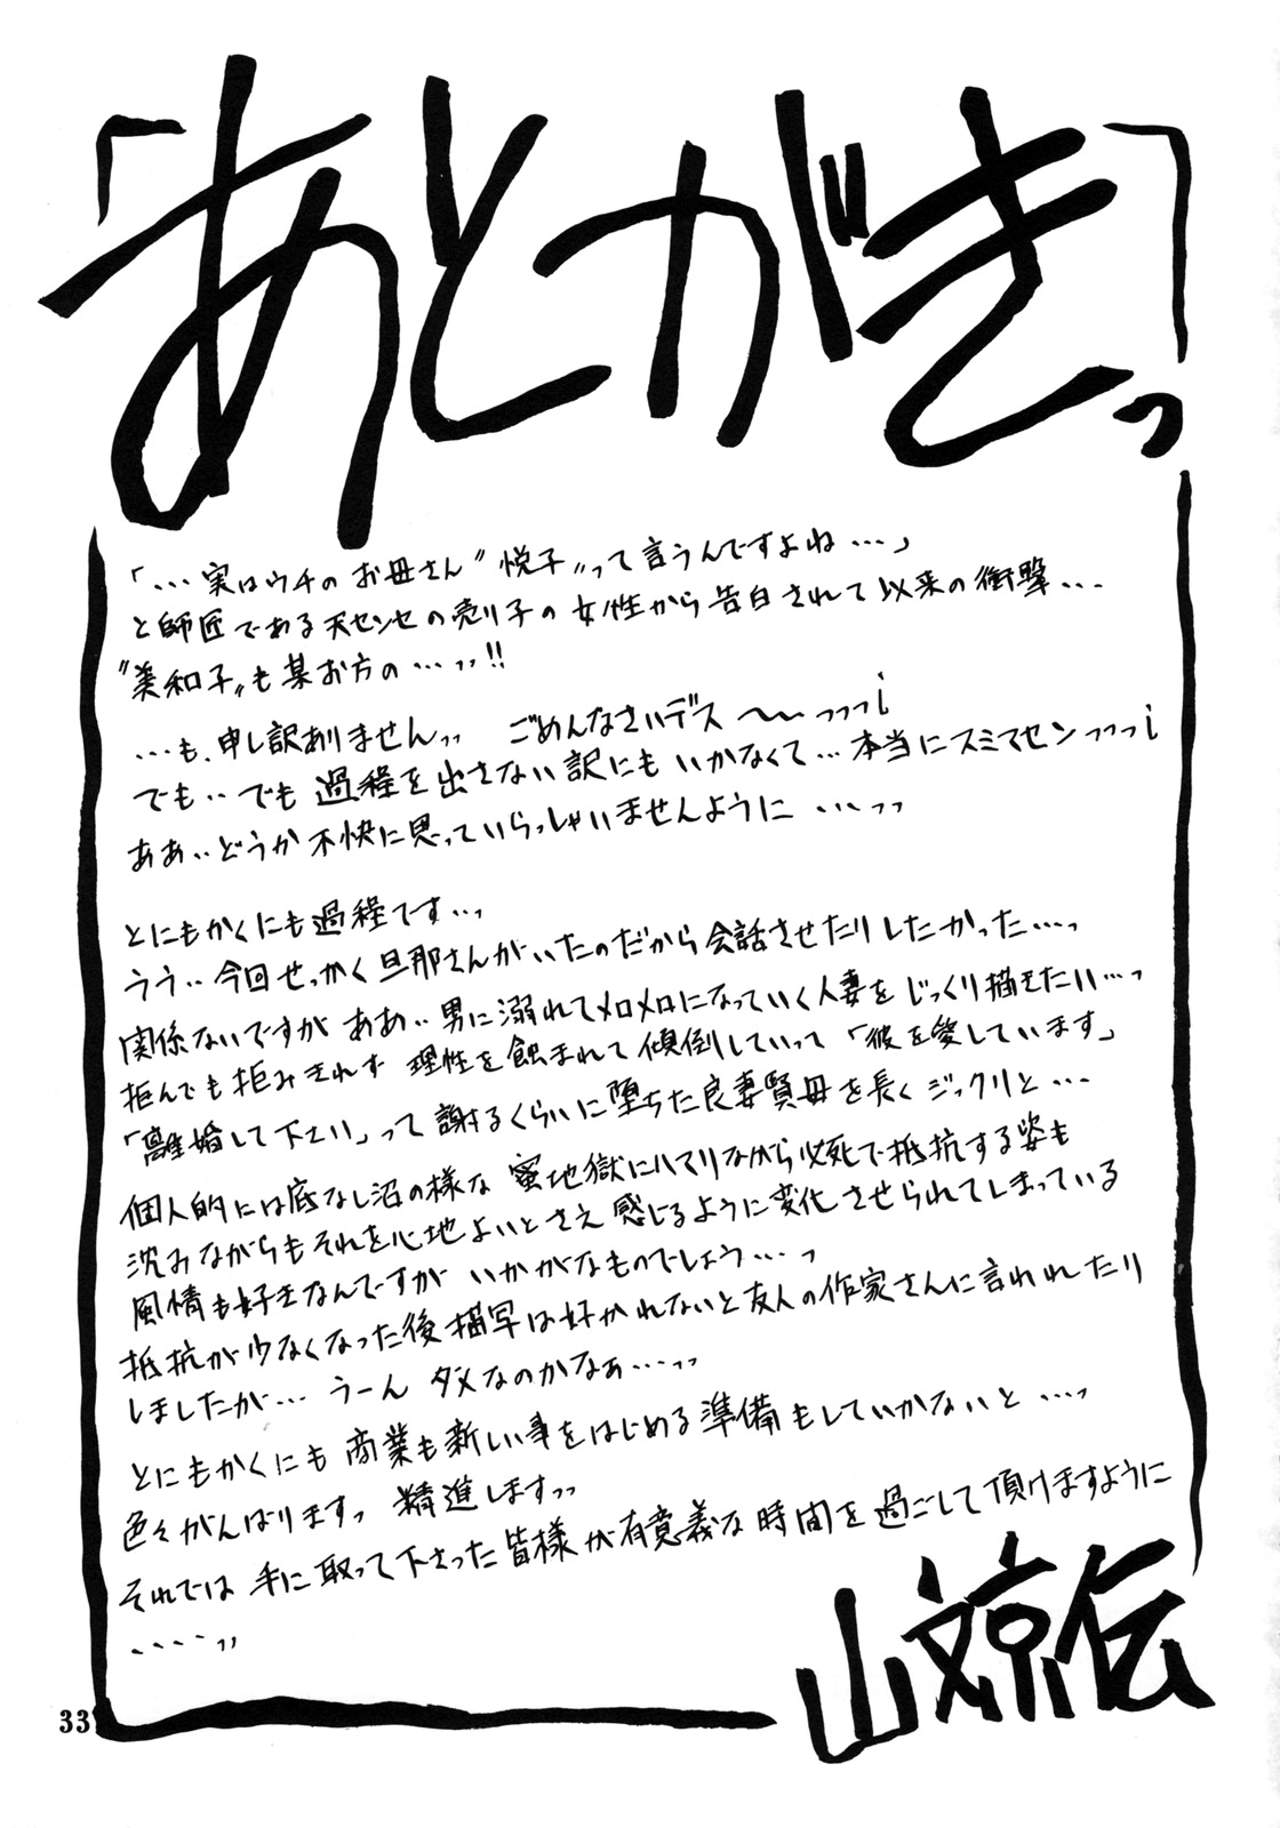 「あとがきっ」
「・・・実はウチのお母さん〝悦子〟って言うんですよね・・・」
と師匠である天センセの売り子の女性から告白されて以来の衝撃・・・
〝美和子〟も某お方の・・・ッッ!!
・・・も、申し訳ありませんッッ ごめんなさいデス〜〜ッッッ¡
でも・・でも過程を出さない訳にもいかなくて・・・本当にスミマセンッッッ¡
ああ・・どうか不快に思っていらっしゃいませんように・・・ッッ
とにもかくにも過程です・・ッ
うう・・今回せっかく旦那さんがいたのだから会話させたりしたかった・・・ッ
関係ないですが ああ・・男に溺れてメロメロになっていく人妻をじっくり描きたい・・・っ
拒んでも拒みきれず 理性を蝕まれて傾倒していって「彼を愛しています」
「離婚して下さい」って謝るくらいに堕ちた良妻賢母を長くジックリと・・・
個人的には底なし沼の様な蜜地獄にハマりながら必死で抵抗する姿も
沈みながらもそれを心地よいとさえ感じるように変化させられてしまっている
風情も好きなんですが いかがなものでしょう・・・っ
抵抗が少なくなった後描写は好かれないと友人の作家さんに言われたり
しましたが・・・うーん ダメなのかなぁ・・・ッッ
とにもかくにも 商業も新しい事をはじめる準備もしていかないと・・・ッ
色々がんばりますっ 精進しますッッ
それでは 手に取って下さった皆様が有意義な時間を過ごして頂けますように
・・・・ッッ
山文京伝
33